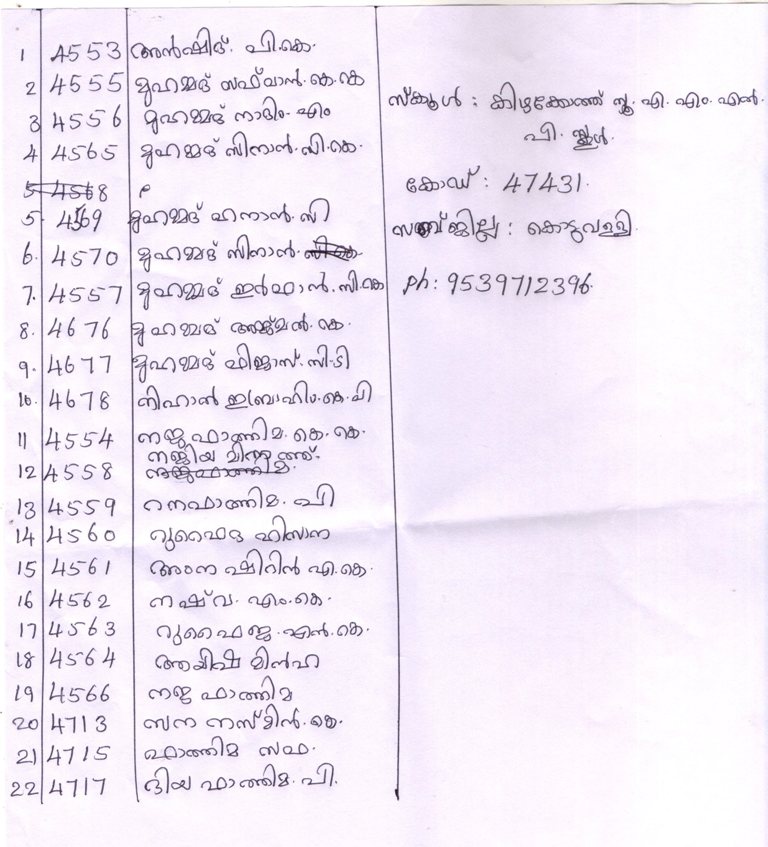 1 4553 അൻഷിദ്. പി.കെ.
2 4555 മുഹമ്മദ് സഫ്‌വാൻ.കെ.കെ
3 4556 മുഹമ്മദ് നാദിം.എം
4 4565 മുഹമ്മദ് സിനാൻ.സി.കെ.
5 4568
5. 4569 മുഹമ്മദ് ഹനാൻ.സി
6. 4570 മുഹമ്മദ് സിനാൻ.
7. 4557 മുഹമ്മദ് ഇർഫാൻ.സി.കെ
8. 4676 മുഹമ്മദ് അജ്മൽ.കെ.
9. 4677 മുഹമ്മദ് ഫിജാസ്.സി.ടി
10. 4678 നിഹാൽ ഇബ്രാഹിം.കെ.പി
11 4554 നജ ഫാത്തിമ.കെ.കെ.
നജിയ
12 4558
13 4559 റനഫാത്തിമ.പി
14 4560 ഹിസാന
15 4561 അംന ഷിറിൻ എ.കെ.
16 4562 നഷ്‌വ.എം.കെ.
17 4563 റുഫൈജ.എൻ.കെ.
18 4564 ആയിഷ മിൻഹ
19 4566 നജ ഫാത്തിമ
20 4713 സന നസ്മിൻ.കെ.
21 4715 ഫാത്തിമ സഫ.
22 4717 ദിയ ഫാത്തിമ.പി.
സ്കൂൾ : കിഴക്കോത്ത് ന്യൂ.എ.എം.എൽ.
പി.സ്കൂൾ.
കോഡ് : 47431.
സബ്ജില്ല : കൊടുവള്ളി.
ph: 9539712396.